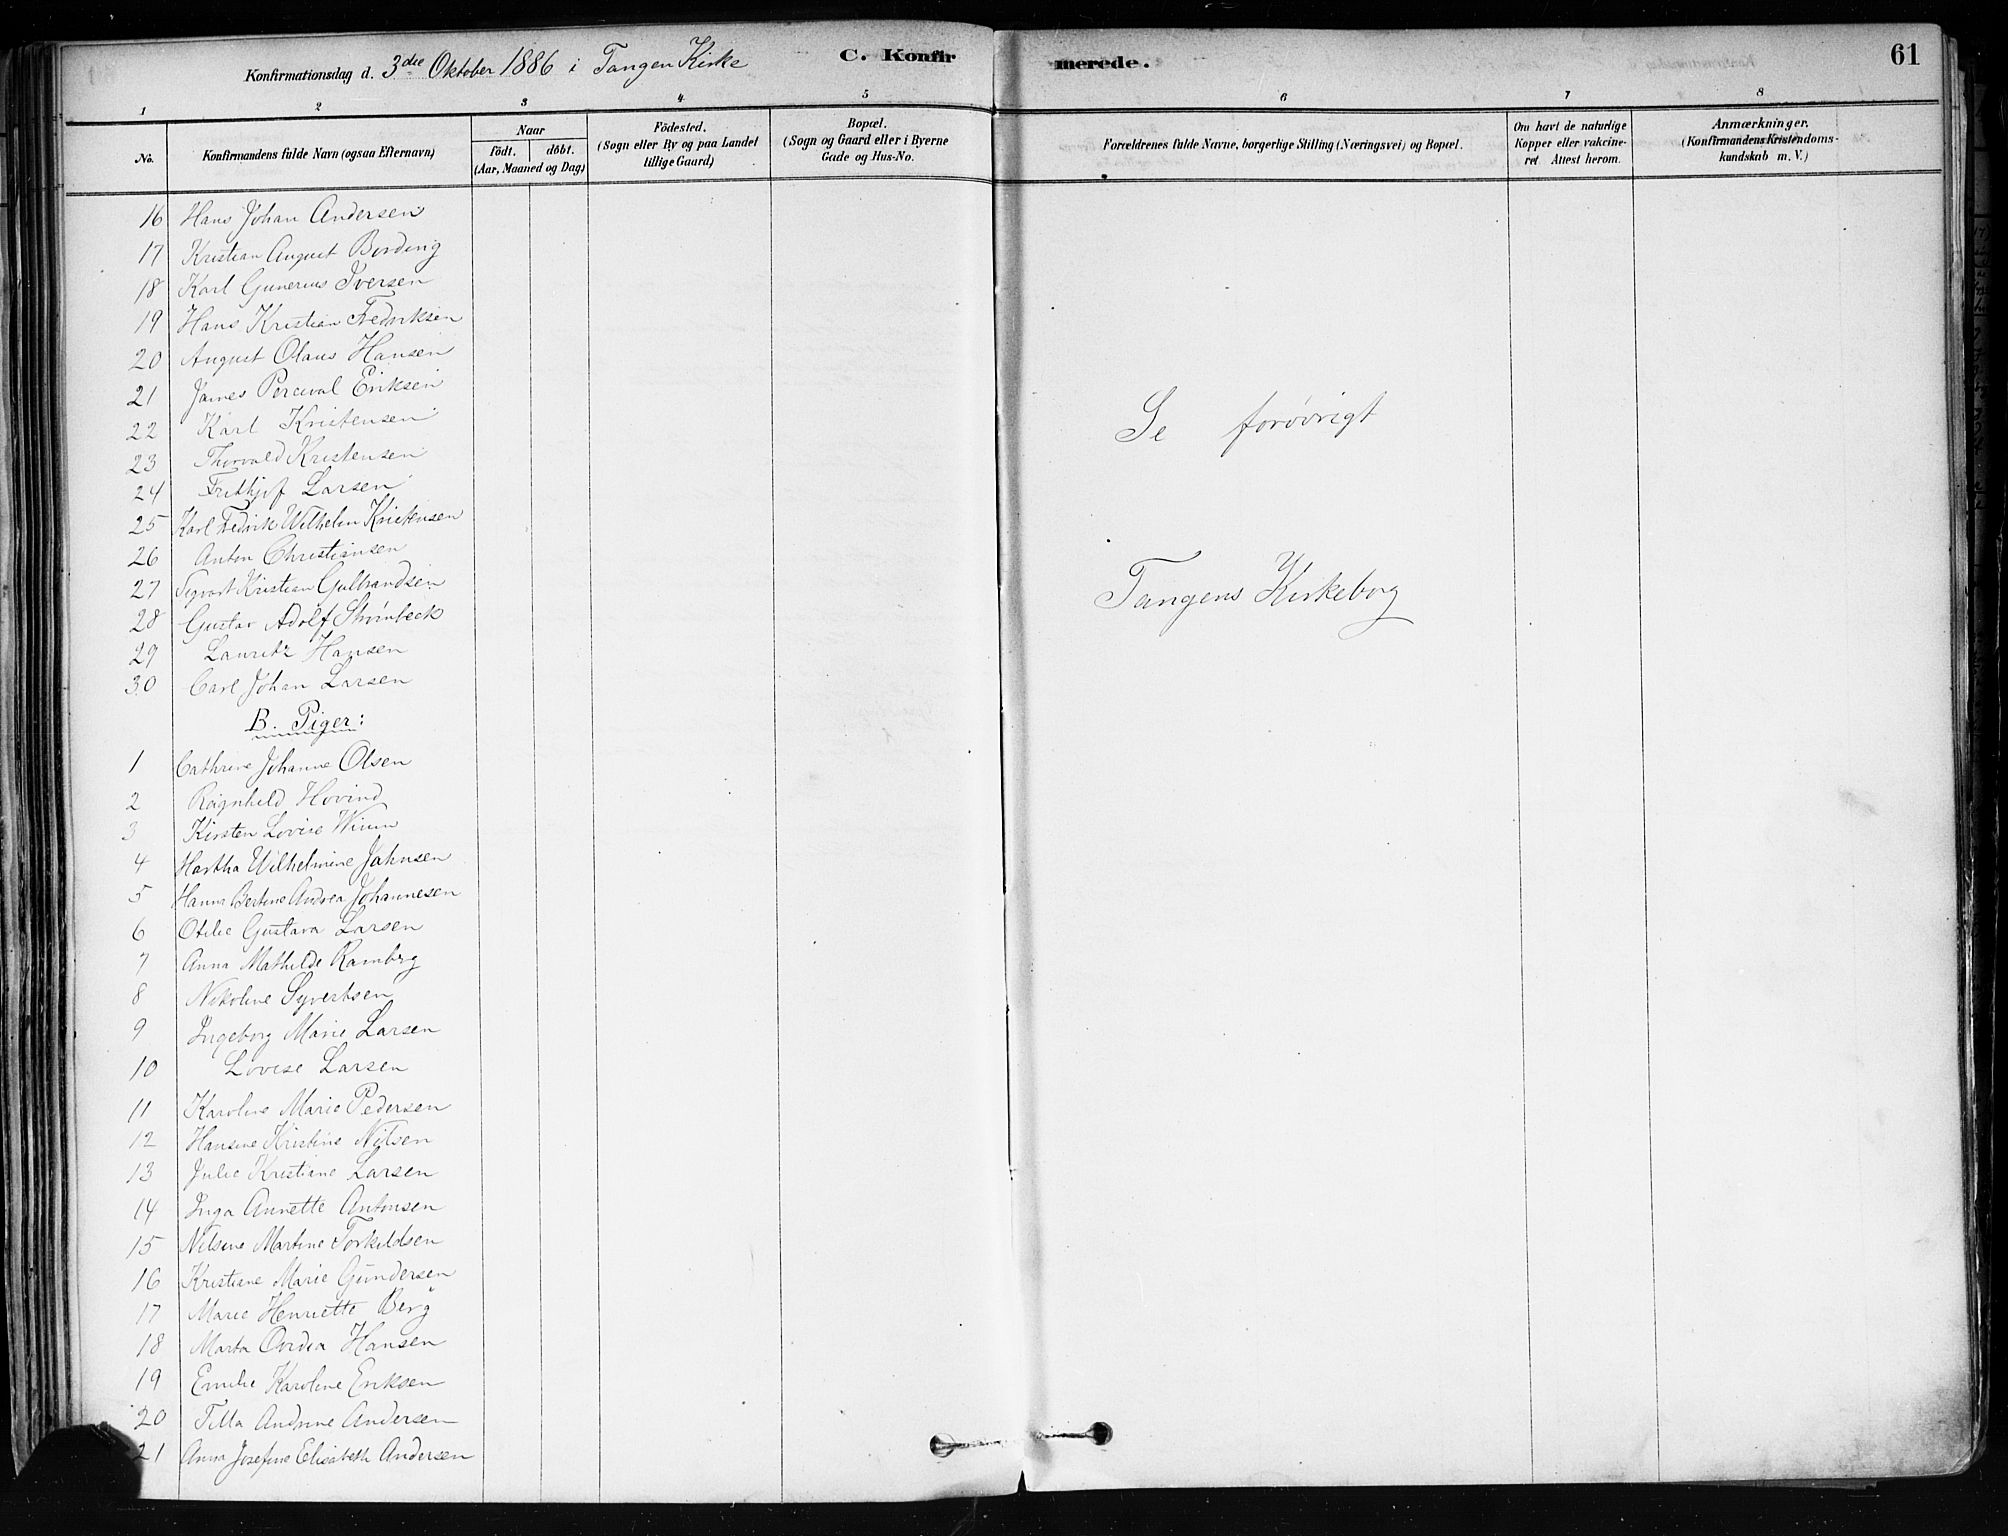 Konfirmationsdag d. 3die Oktober 1886 i Tangen Kirke
C. Konfirmerede.
61
1 2 3 4 5 6 7 8
No.
Konfirmandens fulde Navn (ogsaa Efternavn)
Naar
födt. döbt.
(Aar, Maaned og Dag)
Födested.
(Sogn eller By og paa Landet
tillige Gaard)
Bopæl.
(Sogn og Gaard eller i Byerne
Gade og Hus-No.
Forældrenes fulde Navne, borgerlige Stilling (Næringsvei) og Bopæl.
Om havt de naturlige
Kopper eller vakcine-
ret Attest herom.
Anmærkninger.
(Konfirmandens Kristendoms-
kundskab m. V.)
16 Hans Johan Andersen
17 Kristian August Bording
18 Karl Gunerius Iversen
19 Hans Kristian Fredriksen
20 August Olaus Hansen
21 James Perceval Eriksen
22 Karl Kristensen
23 Thorvald Kristensen
24 Frithjof Larsen
25 Karl Fredrik Wilhelm Kristensen
26 Anton Christiansen
27 Sigvart Kristian Gulbrandsen
28 Gustav Adolf Strömbeck
29 Lauritz Hansen
30 Carl Johan Larsen
B. Piger:
1 Cathrine Johanne Olsen
2 Ragnhild Hovind
3 Kirsten Lovise
4 Hartha Wilhelmine Jahnsen
5 Hanna Bertine Andrea Johannesen
6 Otilie Gustava Larsen
7 Anna Mathilde Ramberg
8 Nikoline Syvertsen
9 Ingeborg Marie Larsen
10 Lovise Larsen
11 Karoline Marie Pedersen
12 Hansine Kristine Nilsen
13 Julie Kristiane Larsen
14 Inga Annette Antonsen
15 Nilsine Martine Torkildsen
16 Kristiane Marie Gundersen
17 Marie Henriette Berg
18 Marta Ovidia Hansen
19 Emilie Karoline Eriksen
20 Tilla Andrine Andersen
21 Anna Josefine Elisabeth Andersen
Se forøvrigt
Tangens Kirkebog